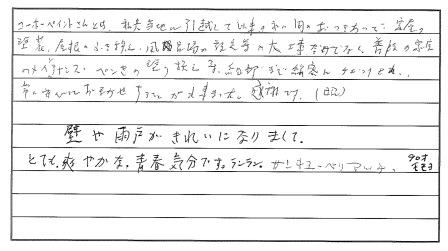 コーホーペイントさんとは、私共当地に引越して以来の永い間のおつきあいで、家屋の
塗装、屋根のふき替え、風呂場の改造等の大工事だけでなく、普段の家屋
のメンテナンス ペンキの塗り替え等、細部まで綿密にチェックされ、
安心しておまかせすることが出来ました。感謝です。(昭)
壁や雨戸がきれいになりまして、
とても爽やかな、青春気分です。ランラン。サンキューベリーマッチ、90才 モモヨ